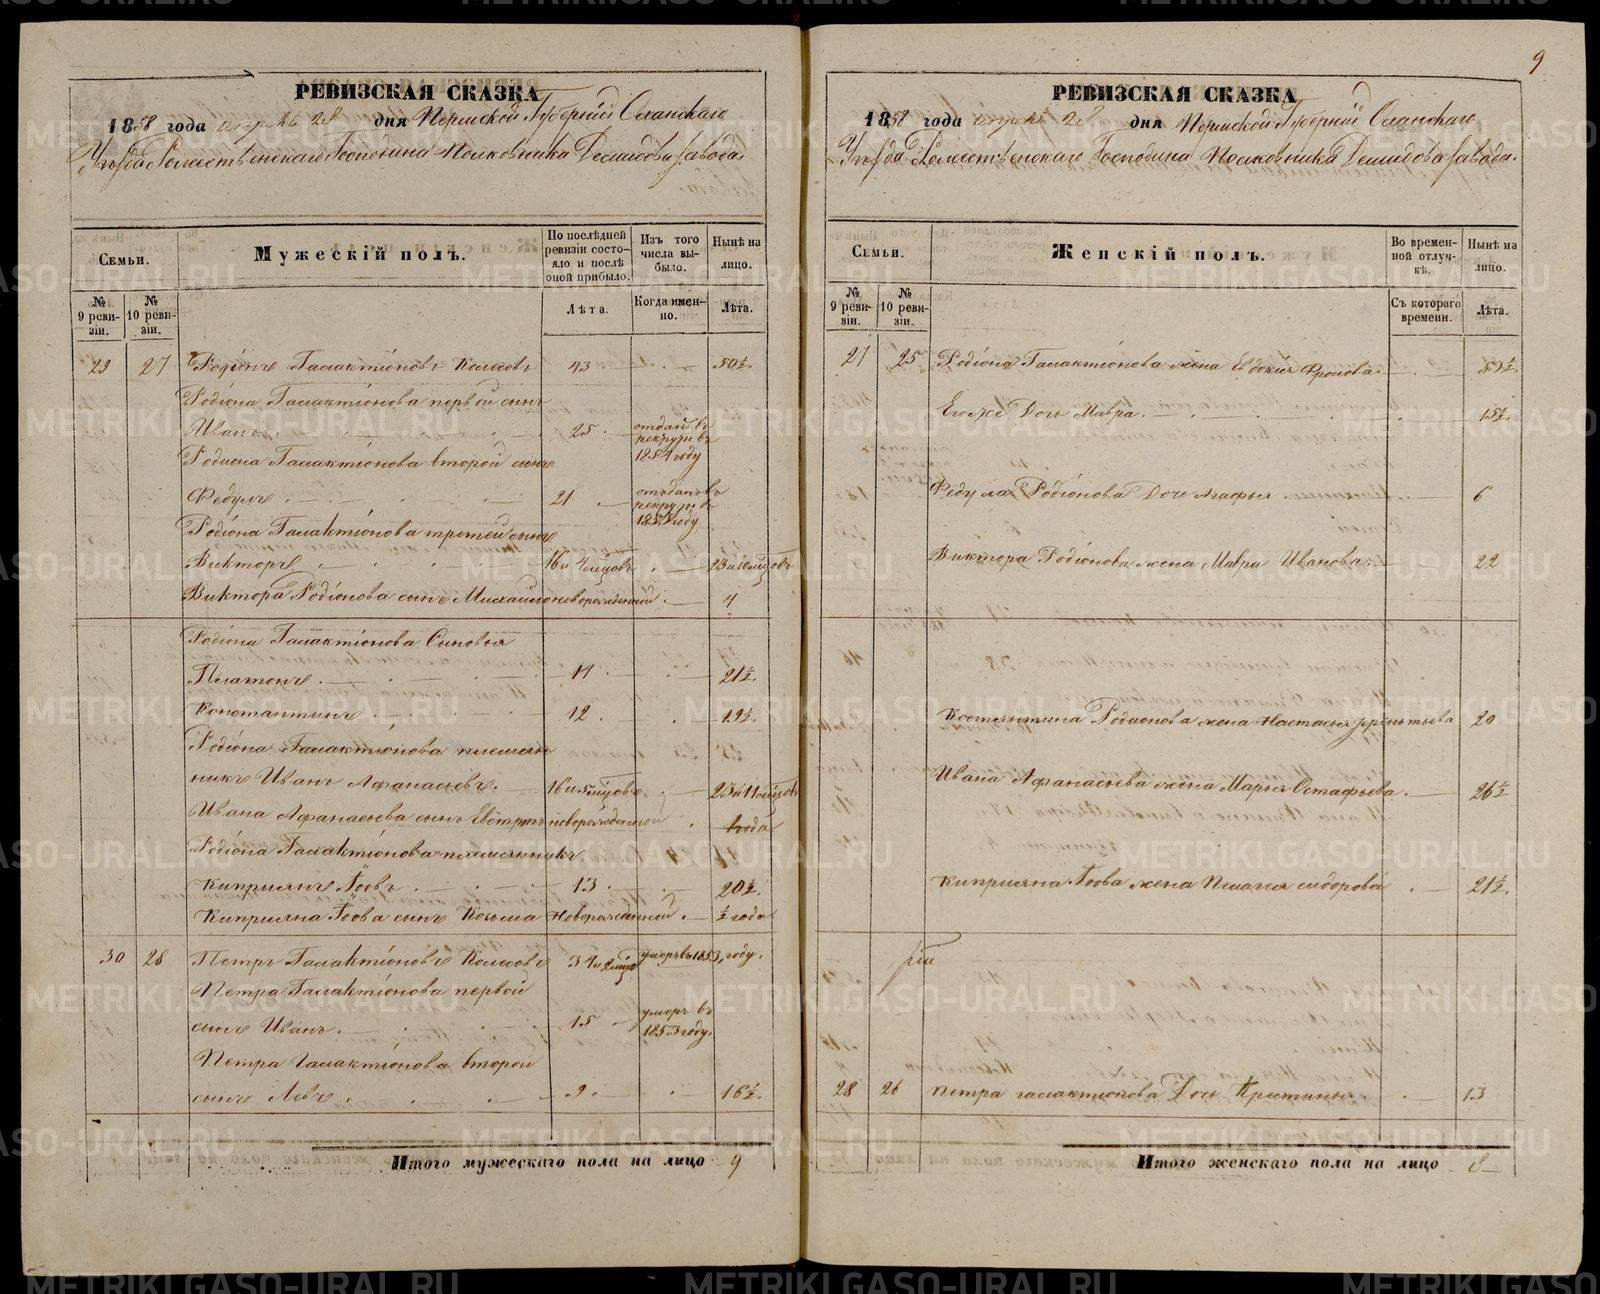 9
РЕВИЗСКАЯ СКАЗКА
1858 года апреля 28 дня Пермской Губерніи Оханскаго
Уезда Рожественскаго Господина Полковника Демидова завода.
Семьи.
Мужескій полъ.
По послѣдней ревизіи состояло и послѣ оной прибыло.
Изъ того числа выбыло.
Нынѣ на лицо.
№ 9 ревизіи.
№ 10 ревизіи.
Лѣта.
Когда именно.
Лѣта.
29 27 Родіонъ Галактіоновъ Колесовъ 43 50½.
Родіона Галактіонова первой сынъ
Иванъ 25 отданъ въ рекруты въ 1854 году
Родиона Галактіонова второй сынъ
Федулъ 21 отъданъ въ рекруты въ 1855 году
Родіона Галактіонова третей сынъ
Викторъ 16 и 4 мѣсцовъ 23 и 10 мѣсцовъ
Виктора Родіонова сынъ Михаило новорожденной 4
Родіона Галактіонова Сыновья
Платонъ 14 21½.
Константинъ 12 19½.
Родіона Галактіонова племян
никъ Иванъ Афанасьевъ 16 и 5 мѣсцовъ 23 и 11 мѣсцовъ
Ивана Афанасьева сынъ новорожденной года
Родіона Галактіонова племянникъ
Киприянъ Іовъ 13 20½.
Киприяна Іова сынъ Козьма новорожденной ½ года
30 28 Петръ Галактіоновъ Колесовъ 34 и 2 умеръ въ 1853 году.
Петра Галактіонова первой
сынъ Иванъ 15 умеръ въ 1853 году.
Петра Галактіонова второй
сынъ Левъ 9 16½.
Итого мужескаго пола на лицо 9
РЕВИЗСКАЯ СКАЗКА
1858 года апреля 28 дня Пермской Губерніи Оханскаго
Уезда Рожественскаго Господина Полковника Демидова завода.
Семьи.
Женскій полъ.
Во временной отлучкѣ.
Нынѣ на лицо.
№ 9 ревизіи.
№ 10 ревизіи.
Съ котораго времени.
Лѣта.
27 25 Родіона Галактіонова жена Евдокия Фролова
Его же Дочь Мавра 15½.
Федула Родіонова Дочь Агафья 6
Виктора Родіонова жена Мавра Иванова 22
Костянтина Родионова жена Настасья 20
Ивана Афанасьева жена Марья Остафьева 26½
Киприяна Іова жена Пелагия Сидорова 21½.
28 26 Петра Галактіонова Дочь Кристинья 13
Итого женскаго пола на лицо 8
METRIKI.GASO-URAL.RU